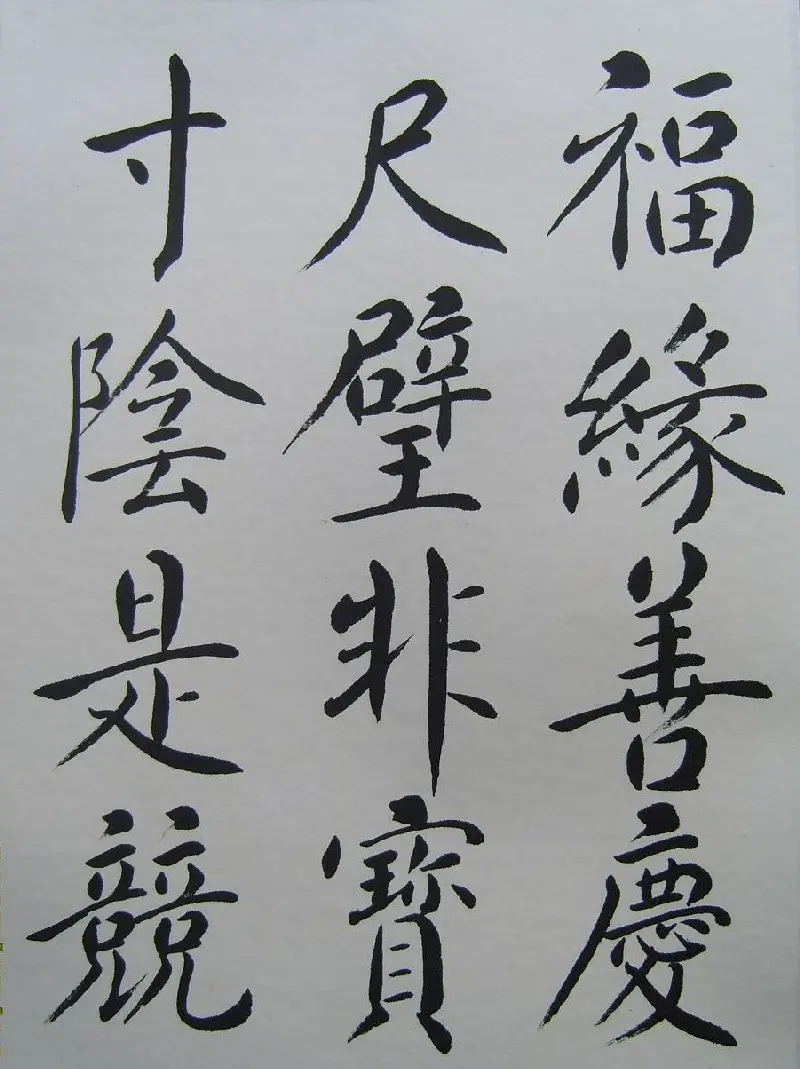 福緣善慶
尺璧非寶
寸陰是競